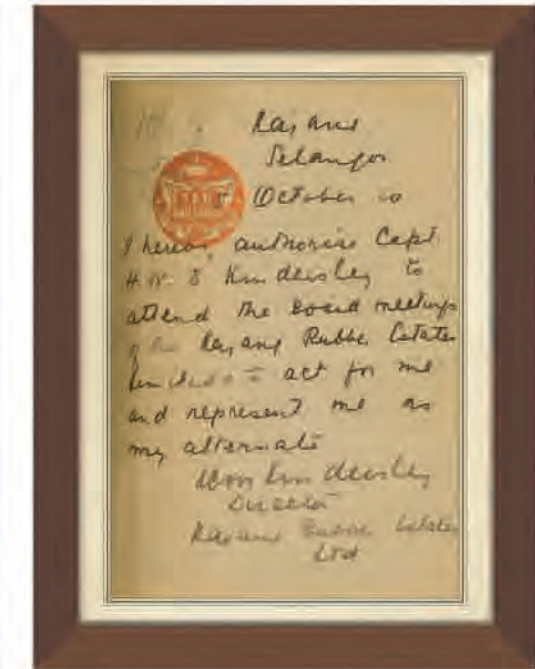 Kajang
Selangor
October 10
I hereby authorise Capt.
H. N. Kindersley to
attend the Board meetings
of the Kajang Rubber Estates
Limited & to act for me
and represent me as
my alternate
Kindersley
Director
Kajang Rubber Estates
Ltd